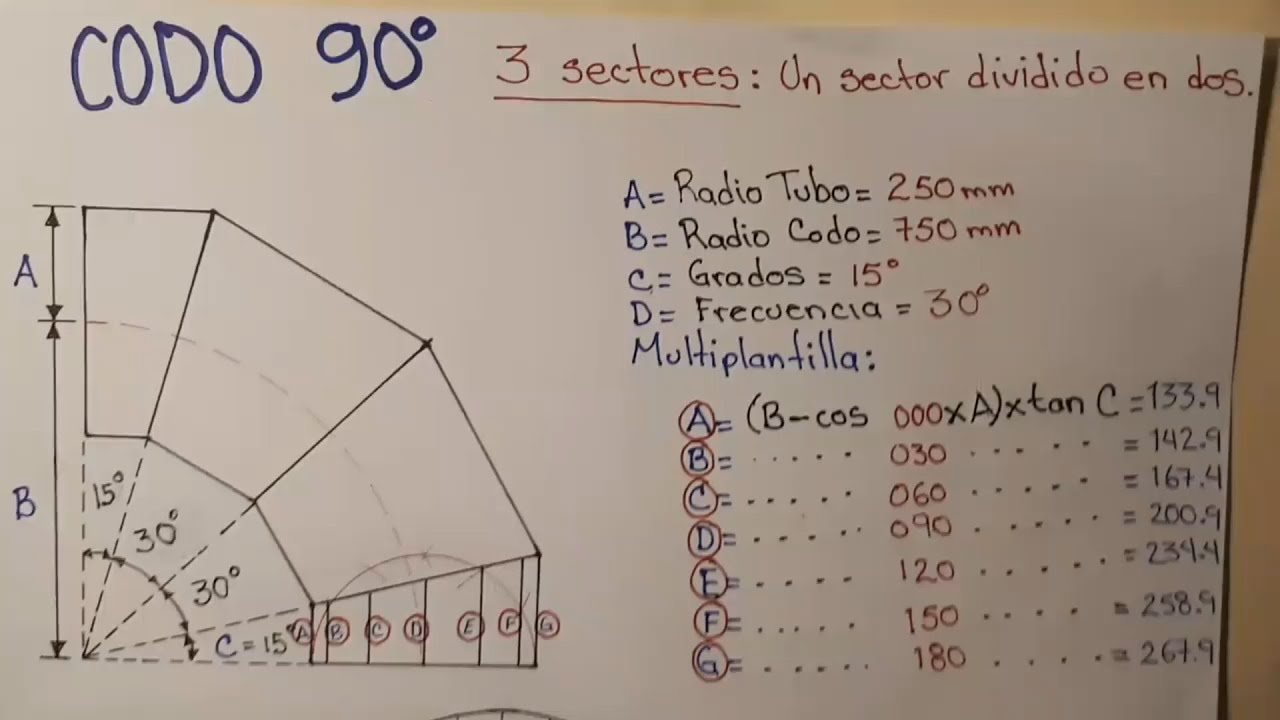 CODO 90°
3 sectores: Un sector dividido en dos.
A= Radio Tubo= 250 mm
B= Radio Codo= 750 mm
C= Grados = 15°
D= Frecuencia = 30°
Multiplantilla:
A= (B-cos 000xA)xtan C =133.9
B= ..... 030 ..... = 142.9
C= ..... 060 ..... = 167.4
D= ..... 090 ..... = 200.9
E= .... 120 ..... = 234.4
F= ..... 150 .... = 258.9
G= ..... 180 ..... = 267.9
A
B
15°
30°
30°
C = 15°
A B C D E F G